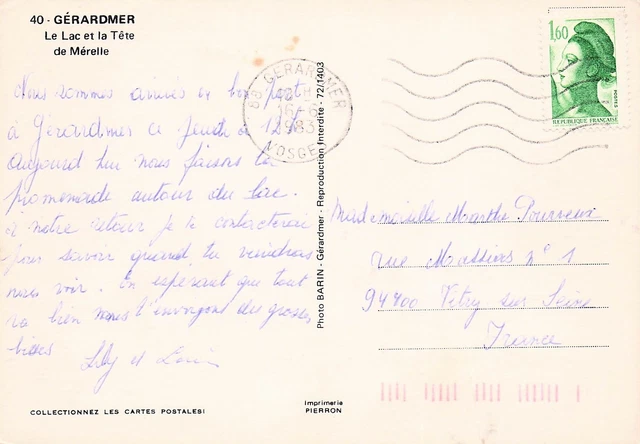 40 - GÉRARDMER
Le Lac et la Tête
de Mérelle
Nous sommes arrivés à bon port
à Gérardmer ce Jeudi à 12h
aujourd hui nous faisons la
promenade autour du Lac.
à notre retour je te contacterai
pour savoir quand tu viendras
nous voir. En espérant que tout
va bien nous t'envoyons des grosses
bises Lily et
COLLECTIONNEZ LES CARTES POSTALES!
Photo BARIN - Gérardmer - Reproduction Interdite - 72/1403
Imprimerie
PIERRON
88 GERARDMER
1983
VOSGES
1,60
POSTES
REPUBLIQUE FRANÇAISE
Mademoiselle Marthe
rue n° 1
94400 Vitry sur Seine
France